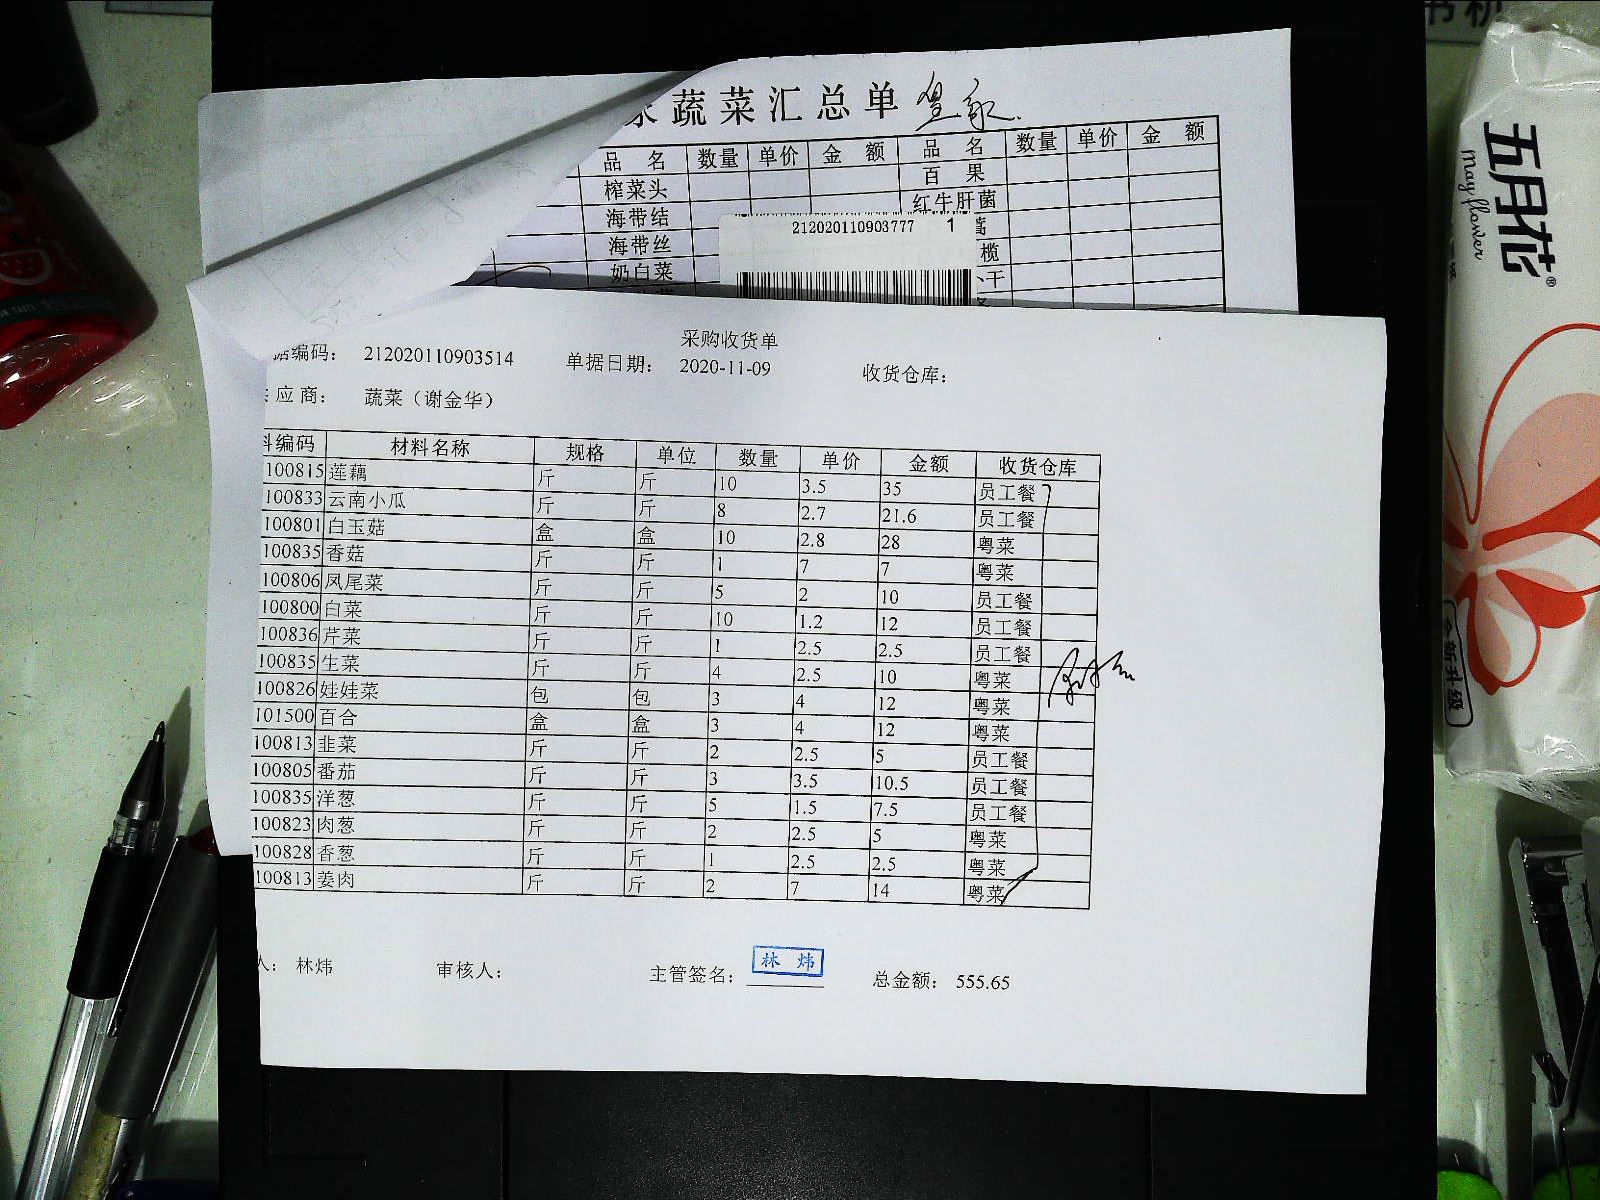 蔬菜汇总单 皇家
品名 数量 单价 金额 品名 数量 单价 金额
榨菜头 百果
海带结 红牛肝菌
海带丝
奶白菜
212020110903777 1
采购收货单
据编码： 212020110903514 单据日期： 2020-11-09 收货仓库：
应商： 蔬菜（谢金华）
料编码 材料名称 规格 单位 数量 单价 金额 收货仓库
100815 莲藕 斤 斤 10 3.5 35 员工餐
100833 云南小瓜 斤 斤 8 2.7 21.6 员工餐
100801 白玉菇 盒 盒 10 2.8 28 粤菜
100835 香菇 斤 斤 1 7 7 粤菜
100806 凤尾菜 斤 斤 5 2 10 员工餐
100800 白菜 斤 斤 10 1.2 12 员工餐
100836 芹菜 斤 斤 1 2.5 2.5 员工餐
100835 生菜 斤 斤 4 2.5 10 粤菜
100826 娃娃菜 包 包 3 4 12 粤菜
101500 百合 盒 盒 3 4 12 粤菜
100813 韭菜 斤 斤 2 2.5 5 员工餐
100805 番茄 斤 斤 3 3.5 10.5 员工餐
100835 洋葱 斤 斤 5 1.5 7.5 员工餐
100823 肉葱 斤 斤 2 2.5 5 粤菜
100828 香葱 斤 斤 1 2.5 2.5 粤菜
100813 姜肉 斤 斤 2 7 14 粤菜
人： 林炜 审核人： 主管签名： 林炜 总金额： 555.65
五月花®
May flower
全新升级